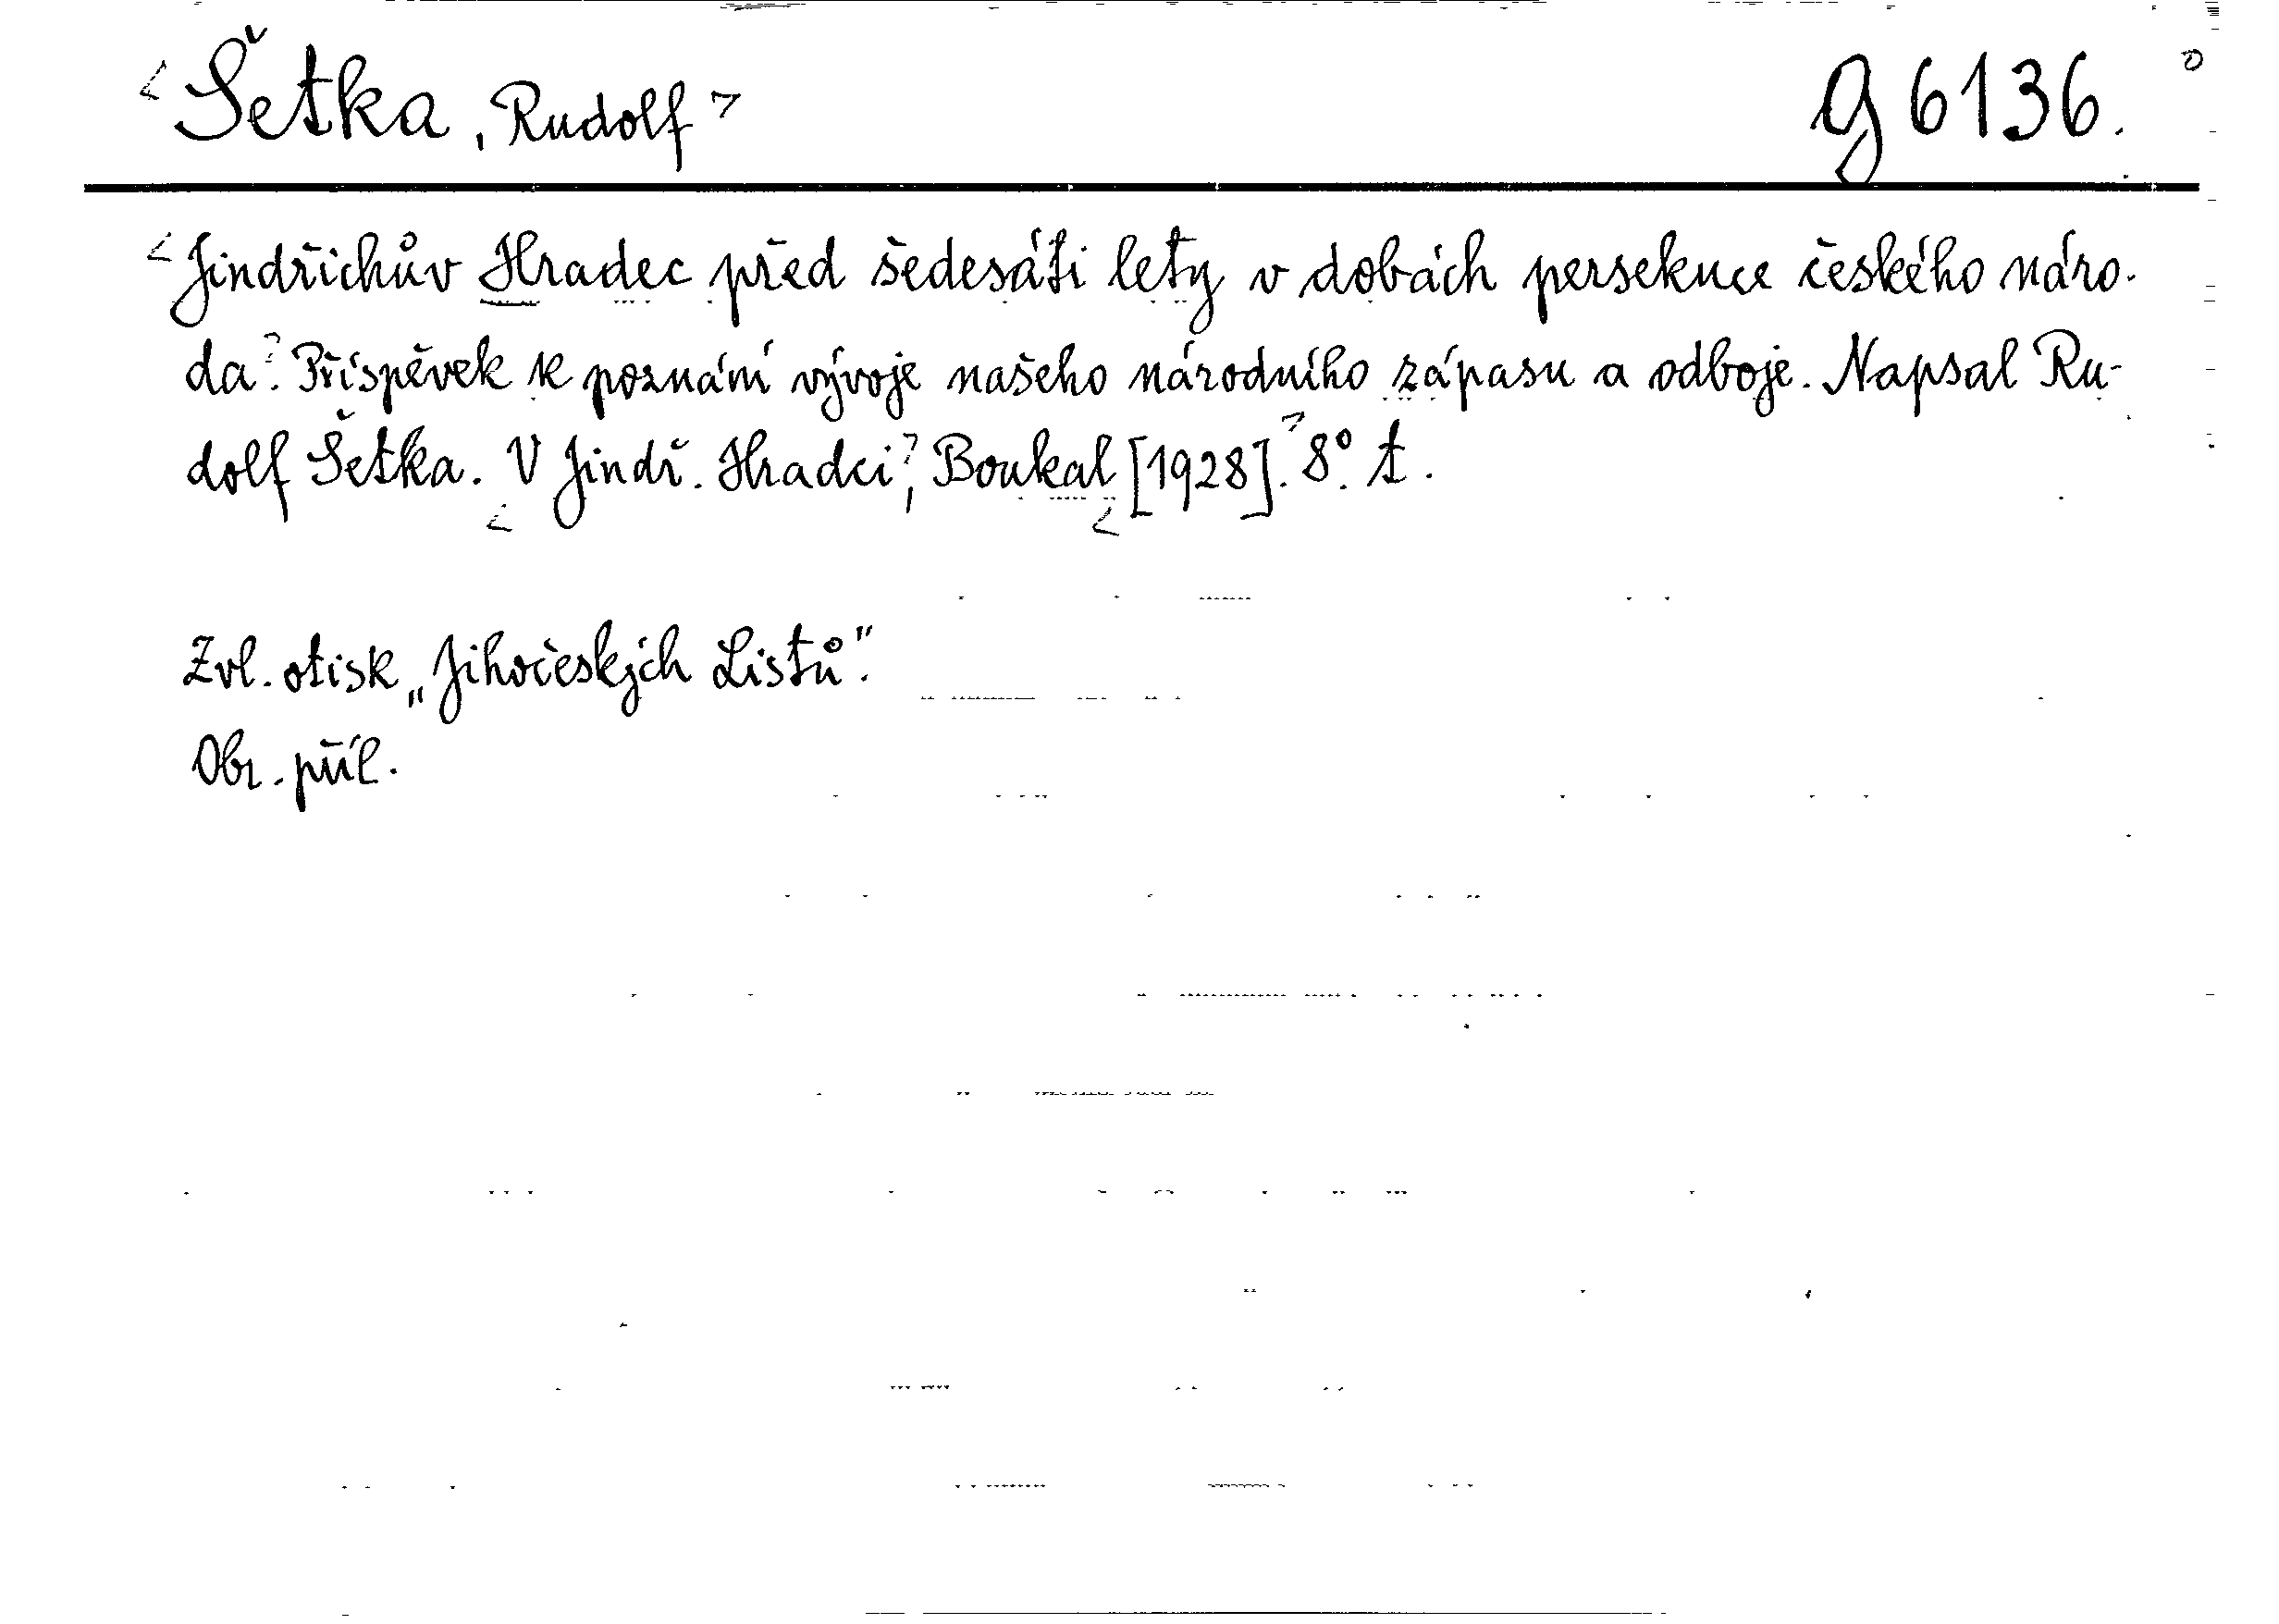 Šetka, Rudolf
g 6136.
Jindřichův Hradec před šedesáti lety v dobách persekuce českého náro-
da. Příspěvek k poznání vývoje našeho národního zápasu a odboje. Napsal Ru-
dolf Šetka. V Jindř. Hradci, Boukal [1928]. 8°. t.
Zvl. otisk „Jihočeských Listů".
Obr. příl.